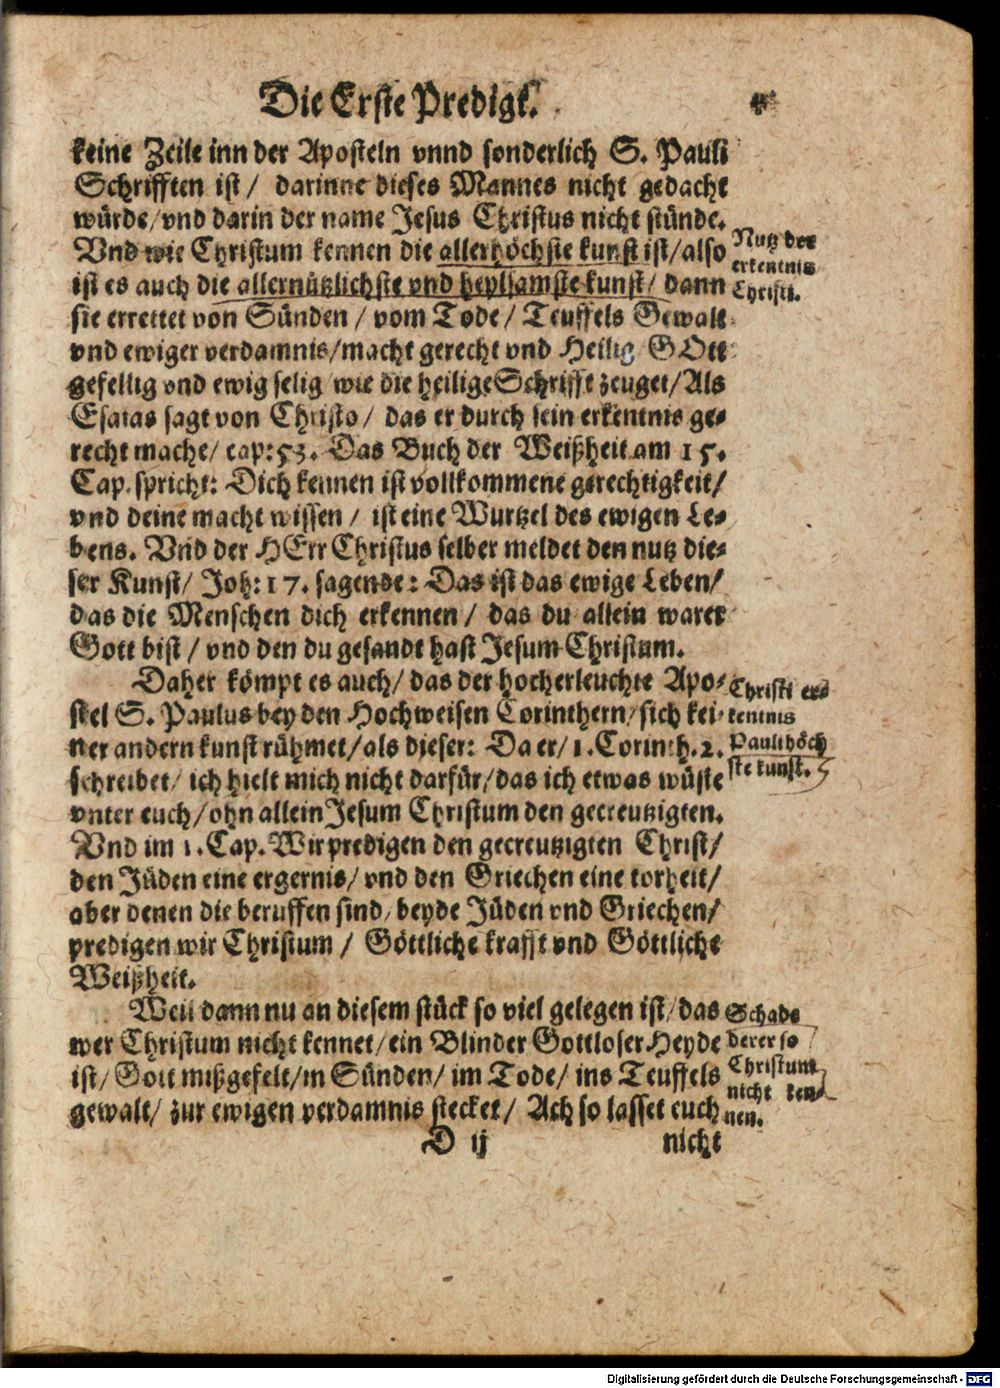 Die Erste Predigt.
keine Zeile inn der Aposteln vnnd sonderlich S. Pauli
Schrifften ist / darinne dieses Mannes nicht gedacht
würde / vnd darin der name Jesus Christus nicht stünde.
Vnd wie Christum kennen die allerhöchste kunst ist / also
ist es auch die allernützlichste vnd heylsamste kunst / dann
sie errettet von Sünden / vom Tode / Teuffels Gewalt
vnd ewiger verdamnis / macht gerecht vnd Heilig GOtt
gefellig vnd ewig selig wie die heilige Schrifft zeuget / Als
Esaias sagt von Christo / das er durch sein erkentnis ge-
recht mache / cap: 53. Das Buch der Weißheit am 15.
Cap. spricht: Dich kennen ist vollkommene gerechtigkeit /
vnd deine macht wissen / ist eine Wurtzel des ewigen Le-
bens. Vnd der HErr Christus selber meldet den nutz die-
ser Kunst / Joh: 17. sagende: Das ist das ewige Leben /
das die Menschen dich erkennen / das du allein warer
Gott bist / vnd den du gesandt hast Jesum Christum.
Daher kömpt es auch / das der hocherleuchte Apo-
stel S. Paulus bey den Hochweisen Corinthern / sich kei-
ner andern kunst rühmet / als dieser: Da er / 1. Corinth. 2.
schreibet / ich hielt mich nicht darfür / das ich etwas wüste
vnter euch / ohn allein Jesum Christum den gecreutzigten.
Vnd im 1. Cap. Wir predigen den gecreutzigten Christ /
den Jüden eine ergernis / vnd den Griechen eine torheit /
aber denen die beruffen sind / beyde Jüden vnd Griechen /
predigen wir Christum / Göttliche krafft vnd Göttliche
Weißheit.
Weil dann nu an diesem stück so viel gelegen ist / das
wer Christum nicht kennet / ein Blinder Gottloser Heyde
ist / Gott mißgefelt / in Sünden / im Tode / ins Teuffels
gewalt / zur ewigen verdamnis stecket / Ach so lasset euch
D ij nicht
Nutz der
erkentnis
Christi.
Christi er-
kentnis
Pauli höch
ste kunst.
Schade
derer so
Christum
nicht ken-
nen.
Digitalisierung gefördert durch die Deutsche Forschungsgemeinschaft - DFG